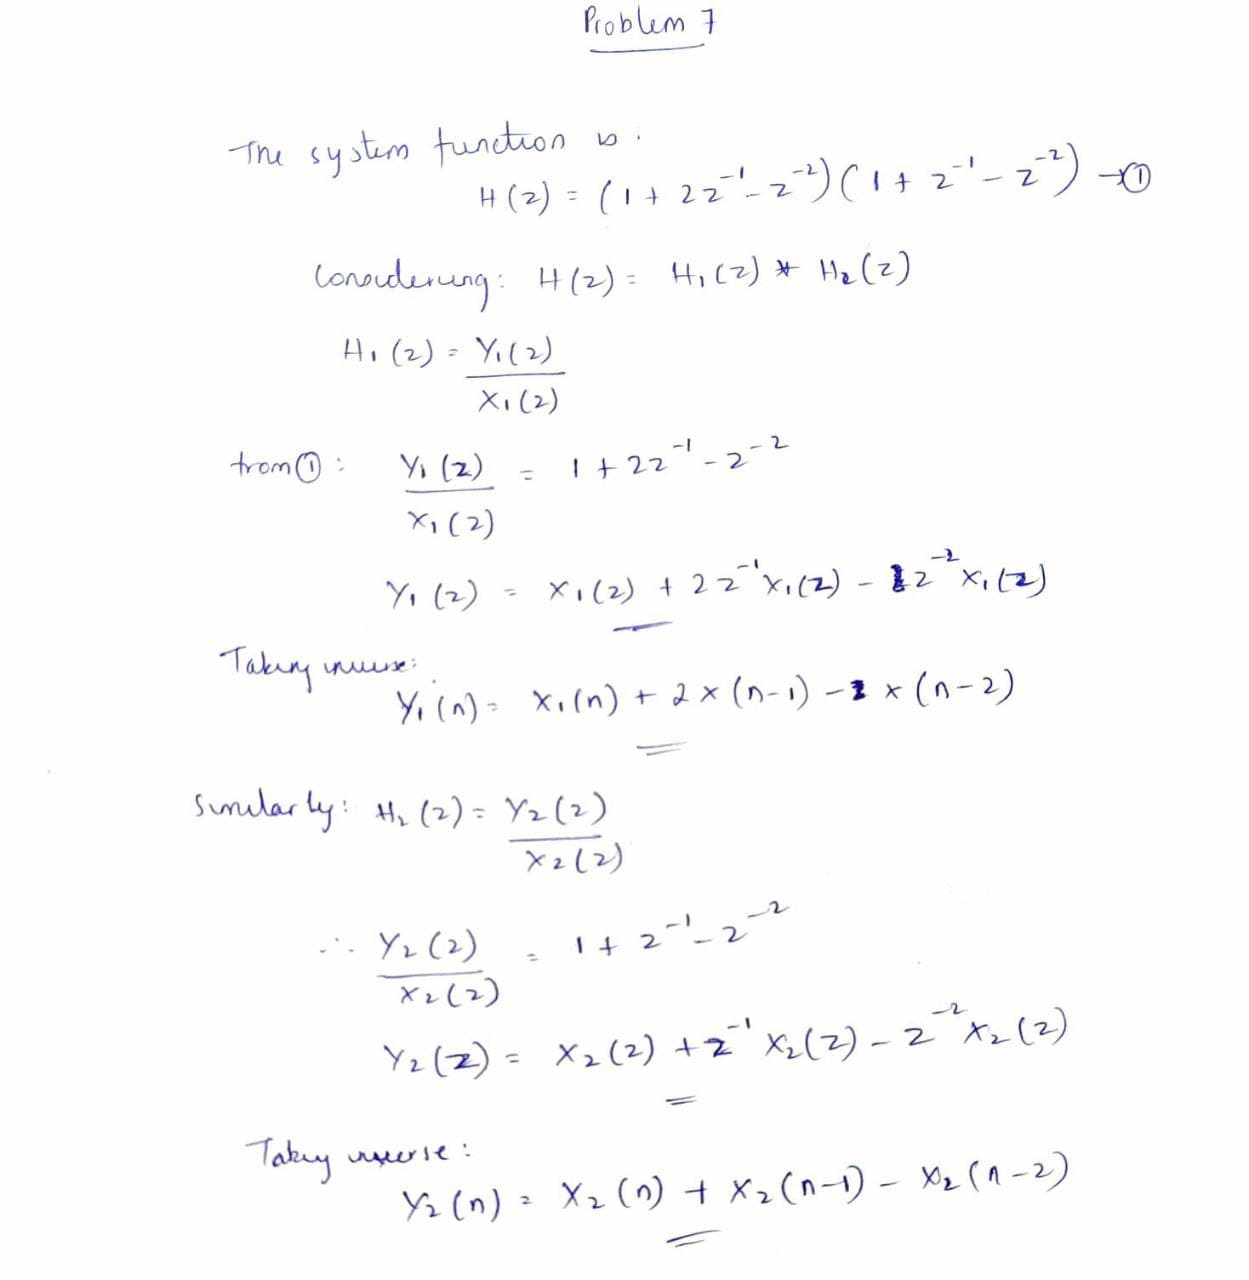 Problem 7
The system function is.
H(z) = (1 + 2z⁻¹ - z⁻²)(1 + z⁻¹ - z⁻²) →①
Considering: H(z) = H₁(z) * H₂(z)
H₁(z) = Y₁(z)
X₁(z)
from①: Y₁(z) = 1 + 2z⁻¹ - z⁻²
X₁(z)
Y₁(z) = X₁(z) + 2z⁻¹X₁(z) - 1z⁻²X₁(z)
Taking inverse:
Y₁(n) = x₁(n) + 2x(n-1) - 1x(n-2)
Similarly: H₂(z) = Y₂(z)
X₂(z)
∴ Y₂(z) = 1 + z⁻¹ - z⁻²
X₂(z)
Y₂(z) = X₂(z) + z⁻¹X₂(z) - z⁻²X₂(z)
Taking inverse:
Y₂(n) = X₂(n) + X₂(n-1) - X₂(n-2)